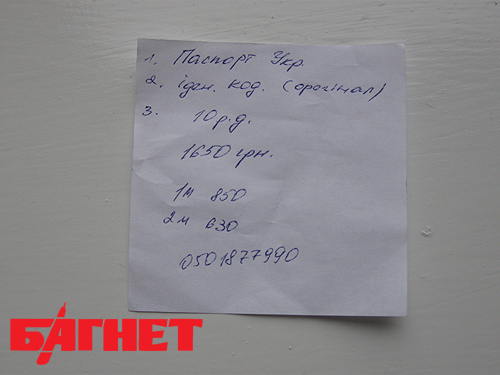 1. Паспорт Укр.
2. іден. код. (оригінал)
3. 10 р.д.
1650 грн.
1м 850
2м 630
0501877990
БАГНЕТ